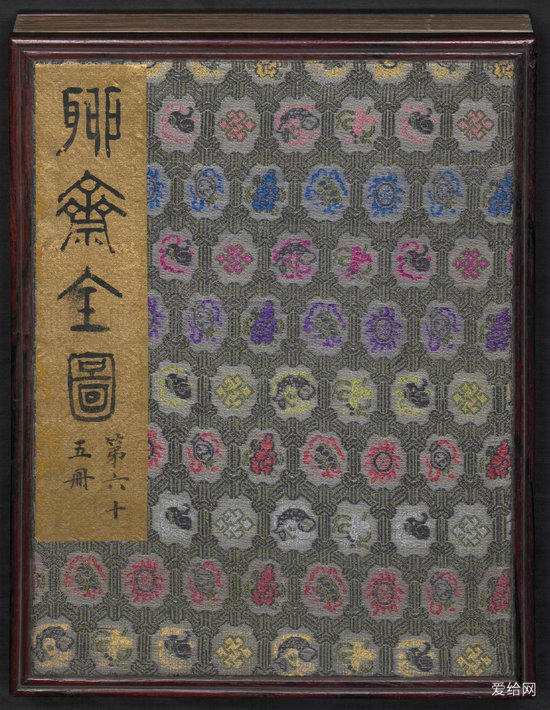 聊齋全圖
第六十
五冊
爱给网